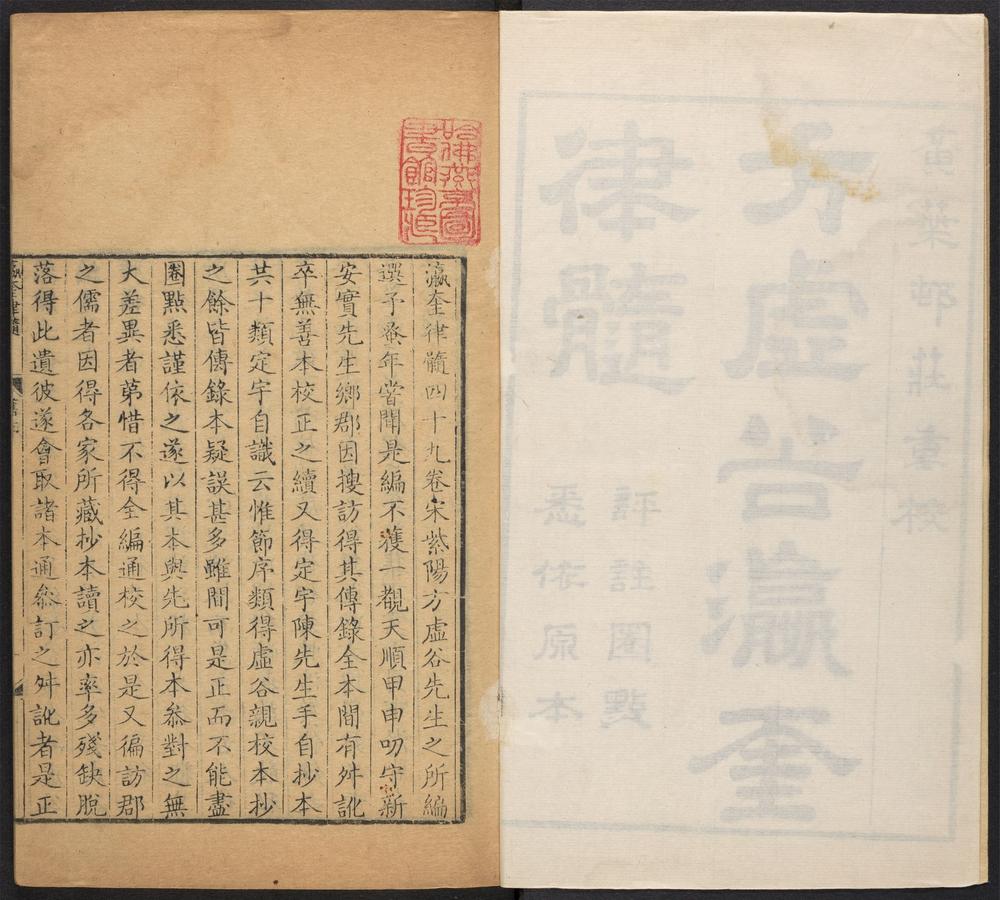 黃葉邨莊重校
方虛谷瀛奎
律髓
評註圈點
悉依原本
哈佛燕京圖
書館珍藏
瀛奎律髓四十九卷宋紫陽方虛谷先生之所編
選予蚤年嘗聞是編不獲一覩天順甲申叨守新
安實先生鄉郡因搜訪得其傳錄全本間有舛訛
卒無善本校正之續又得定宇陳先生手自抄本
共十類定宇自識云惟節序類得虛谷親校本抄
之餘皆傳錄本疑誤甚多雖間可是正而不能盡
圈點悉謹依之遂以其本與先所得本叅對之無
大差異者第惜不得全編通校之於是又徧訪郡
之儒者因得各家所藏抄本讀之亦率多殘缺脫
落得此遺彼遂會取諸本通叅訂之舛訛者是正
瀛奎律髓